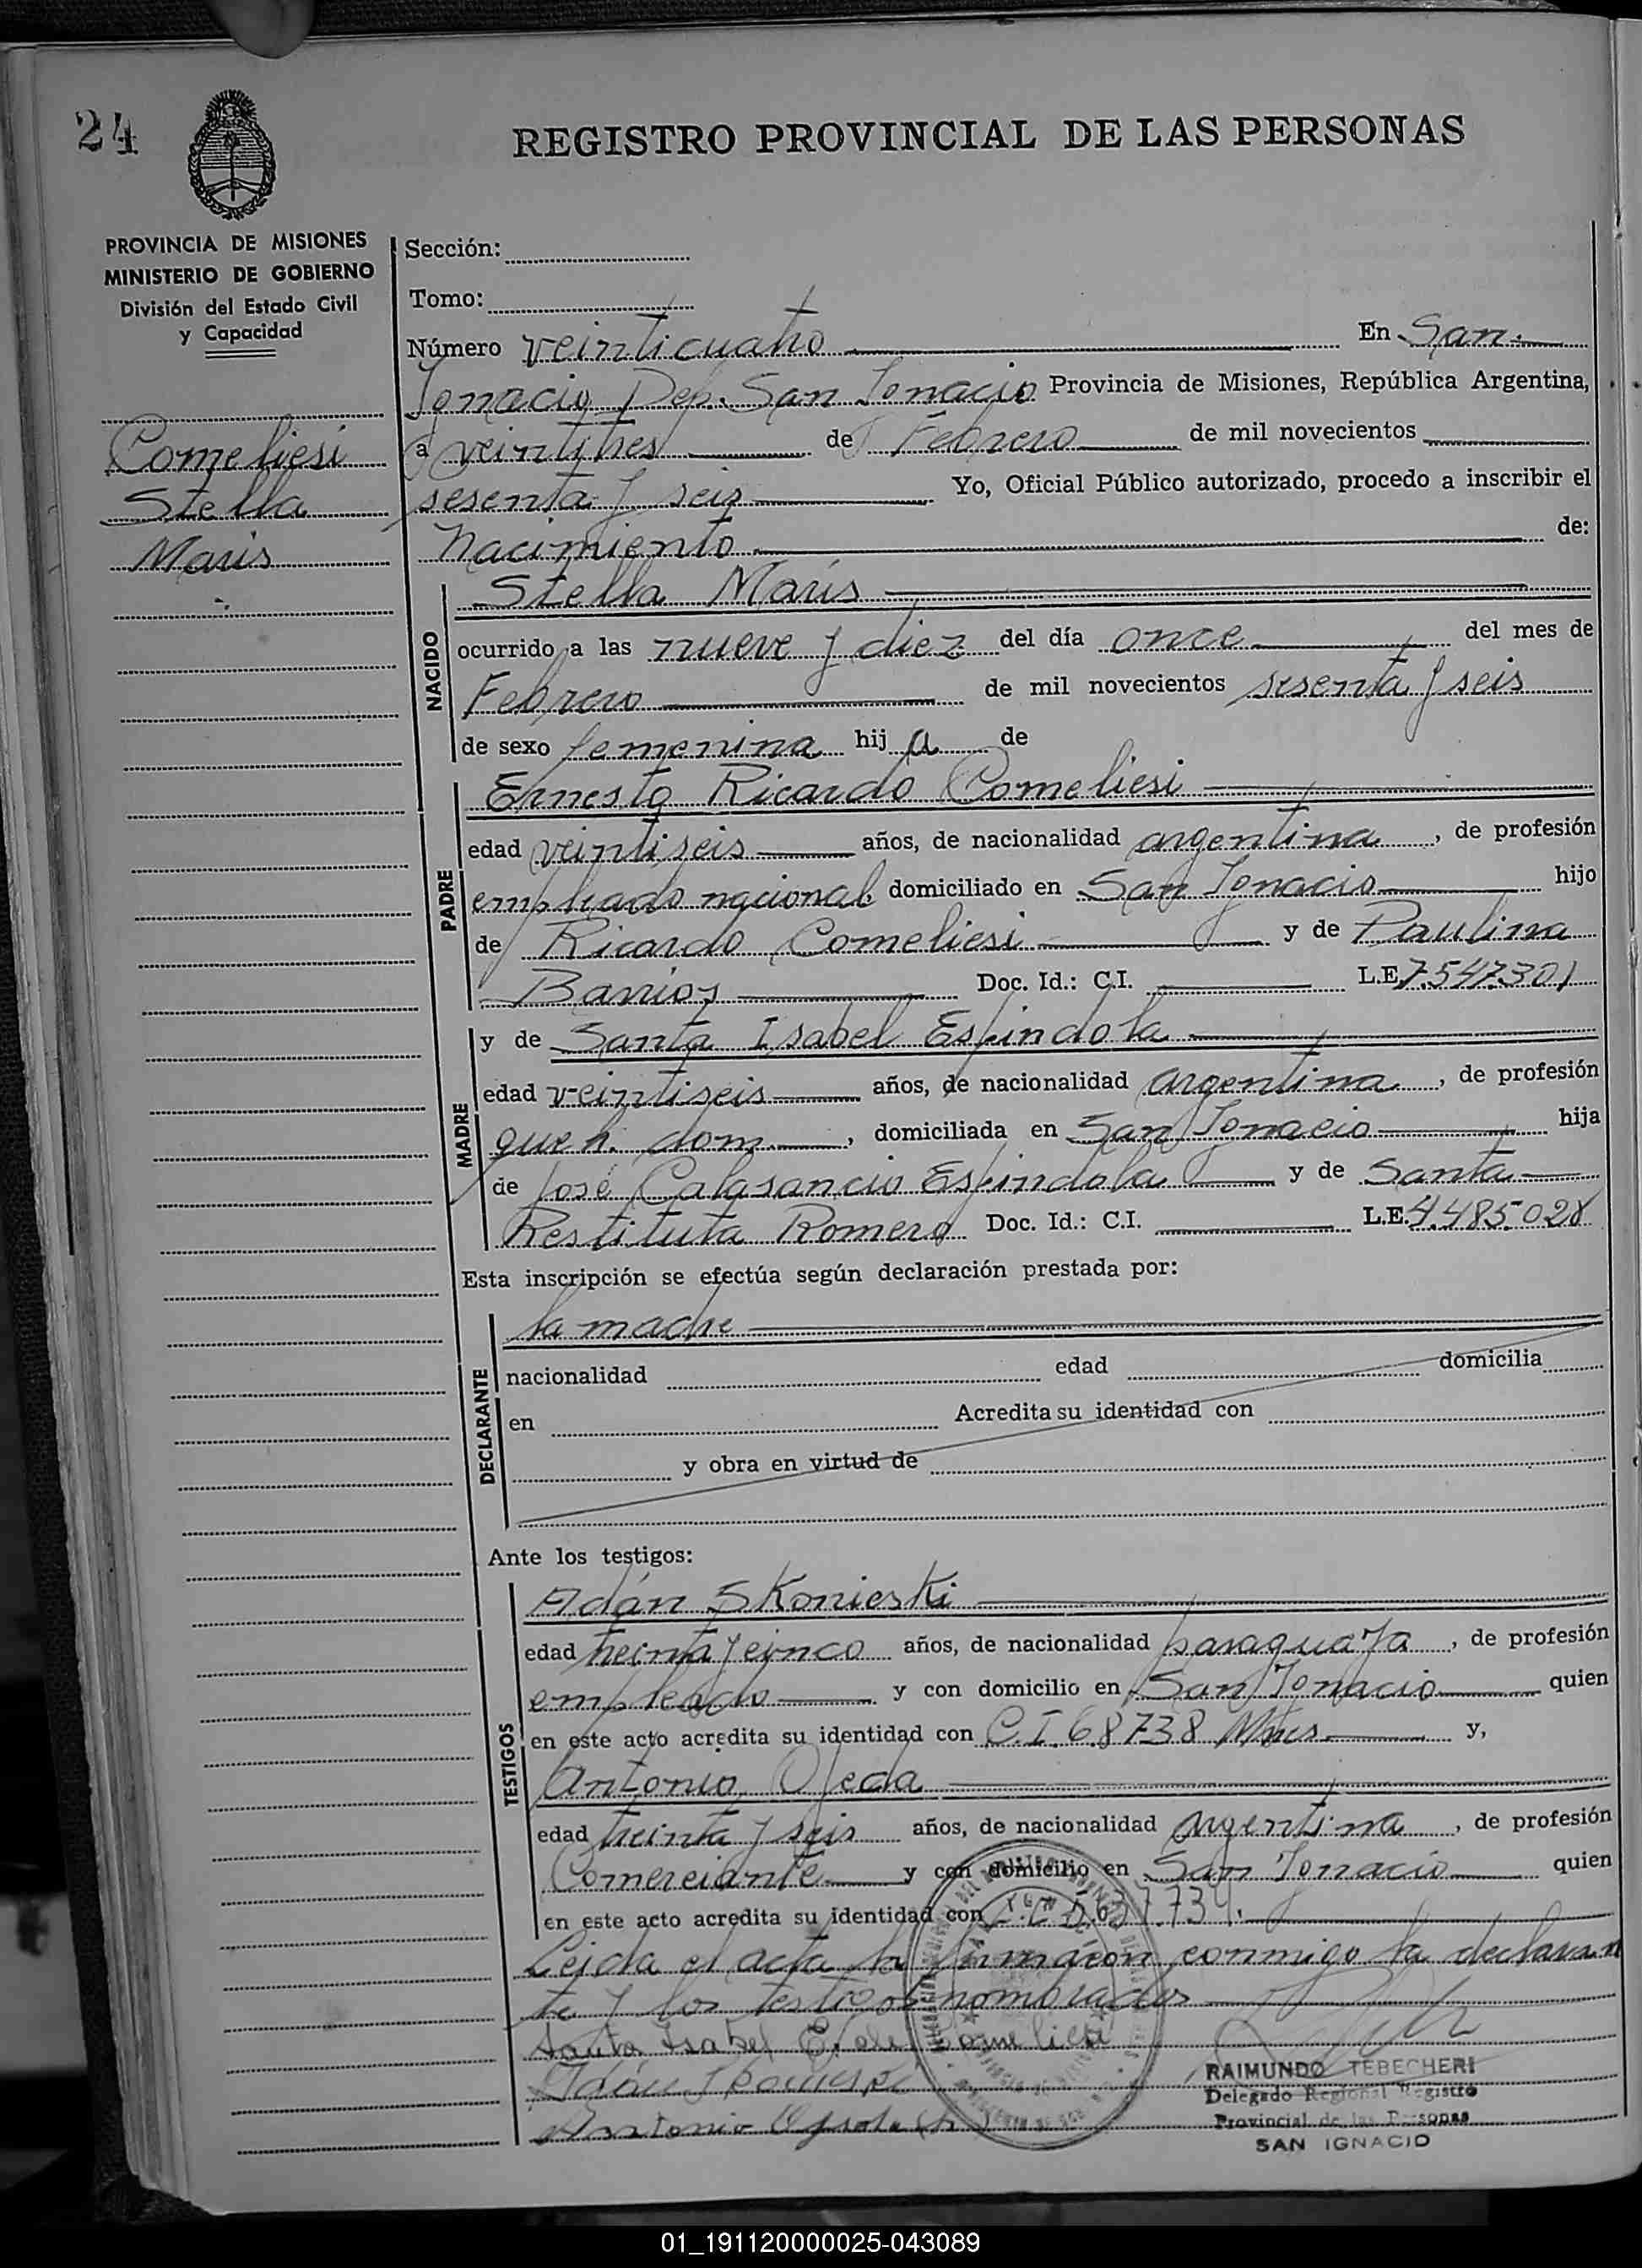 24
REGISTRO PROVINCIAL DE LAS PERSONAS
PROVINCIA DE MISIONES
MINISTERIO DE GOBIERNO
División del Estado Civil
y Capacidad
Comeliesi
Stella
Maris
Sección:
Tomo:
Número veinticuatro En San
Ignacio Dep. San Ignacio Provincia de Misiones, República Argentina,
a veintitres de Febrero de mil novecientos
sesenta y seis Yo, Oficial Público autorizado, procedo a inscribir el
Nacimiento de:
NACIDO
Stella Maris
ocurrido a las nueve y diez del día once del mes de
Febrero de mil novecientos sesenta y seis
de sexo femenina hij a de
PADRE
Ernesto Ricardo Comeliesi
edad veintiseis años, de nacionalidad argentina, de profesión
empleado nacional domiciliado en San Ignacio hijo
de Ricardo Comeliesi y de Paulina
Barrios Doc. Id.: C.I. L.E. 7.547.301
MADRE
y de Santa Isabel Espindola
edad veintiseis años, de nacionalidad argentina, de profesión
queh. dom., domiciliada en San Ignacio hija
de José Calasancio Espindola y de Santa
Restituta Romero Doc. Id.: C.I. L.E. 4.485.028
Esta inscripción se efectúa según declaración prestada por:
DECLARANTE
la madre
nacionalidad edad domicilia
en Acredita su identidad con
y obra en virtud de
Ante los testigos:
TESTIGOS
Adán Skonieski
edad treinta y cinco años, de nacionalidad paraguaya, de profesión
empleado y con domicilio en San Ignacio quien
en este acto acredita su identidad con C.I. 68738 Mnes y,
Antonio Ojeda
edad treinta y seis años, de nacionalidad argentina, de profesión
Comerciante y con domicilio en San Ignacio quien
en este acto acredita su identidad con
Leida el acta la firmaron conmigo la declaran
te y los testigos nombrados
Santa Isabel E. de Comeliesi
RAIMUNDO TEBECHERI
Delegado Regional Registro
Provincial de las Personas
SAN IGNACIO
01_191120000025-043089